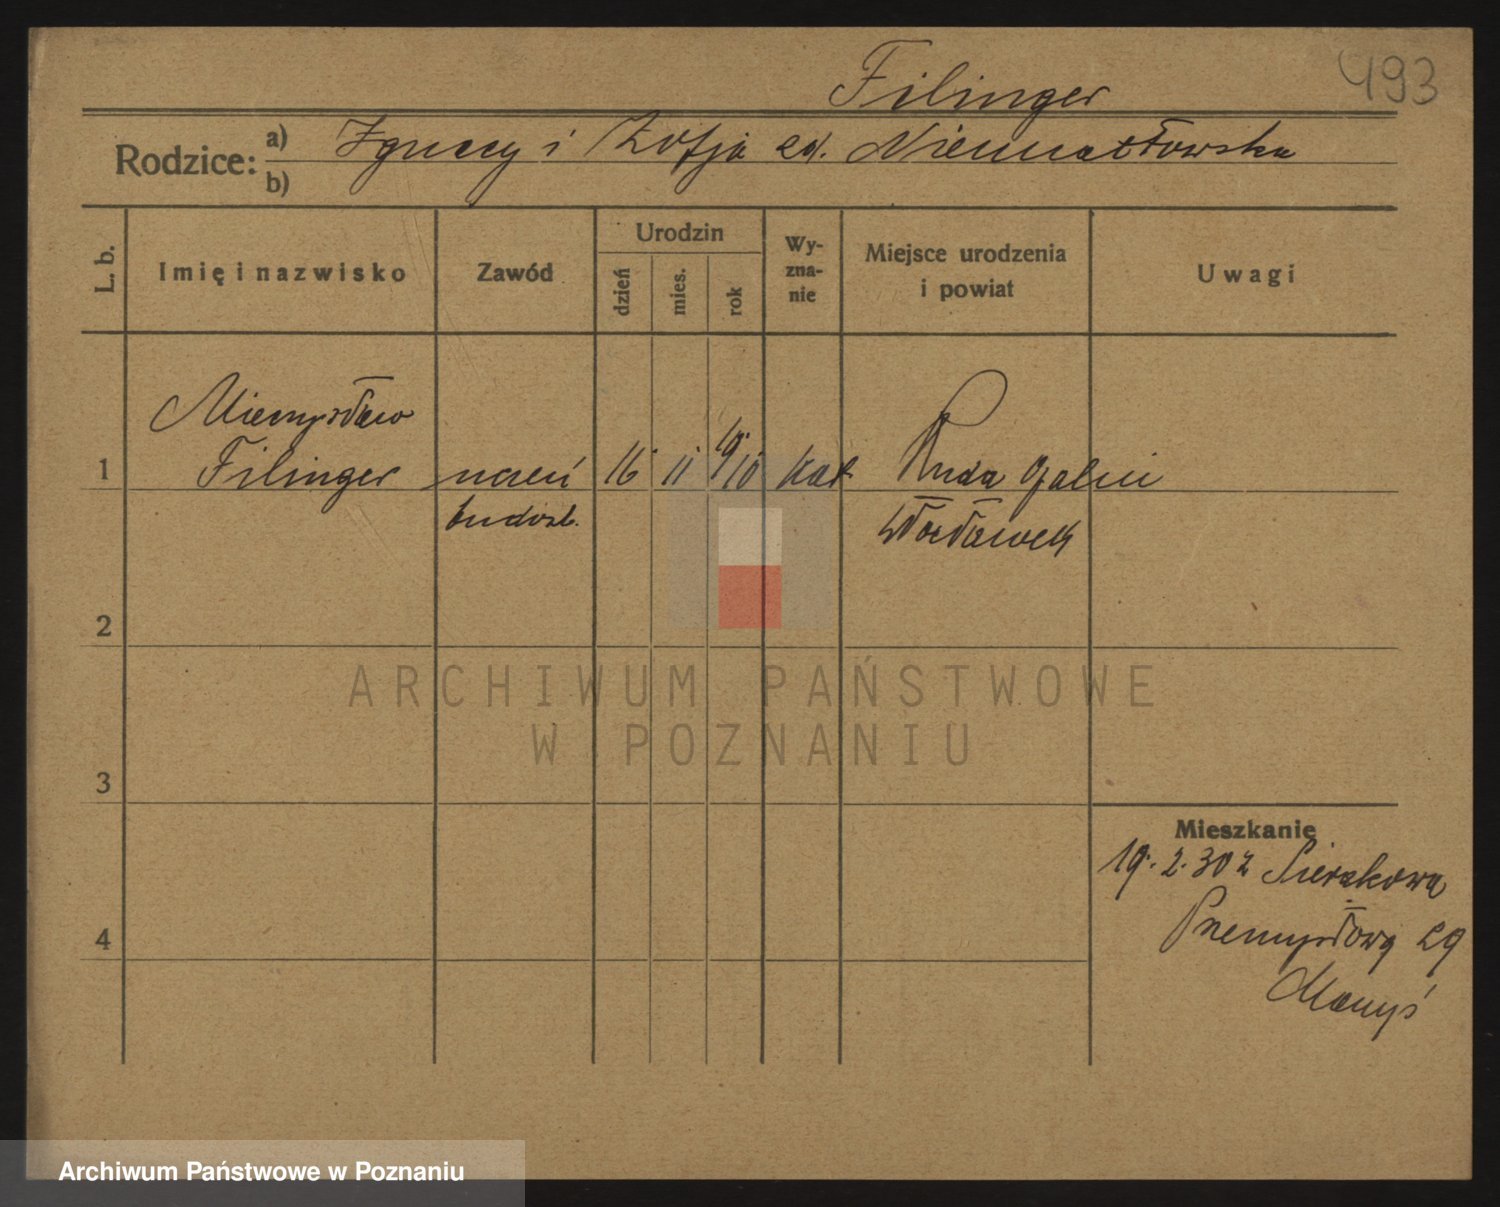 Filinger
493
Rodzice: a) Ignacy i Zofja
b)
L. b.
Imię i nazwisko
Zawód
Urodzin
dzień
mies.
rok
Wy-
zna-
nie
Miejsce urodzenia
i powiat
Uwagi
1
Mieczysław
Filinger
uczeń
budowl.
16
11
1910
kat.
Ruda
Włocławek
2
3
4
Mieszkanie
19.2.30 z Sierakowa
Przemysłowa 29
ARCHIWUM PAŃSTWOWE
W POZNANIU
Archiwum Państwowe w Poznaniu